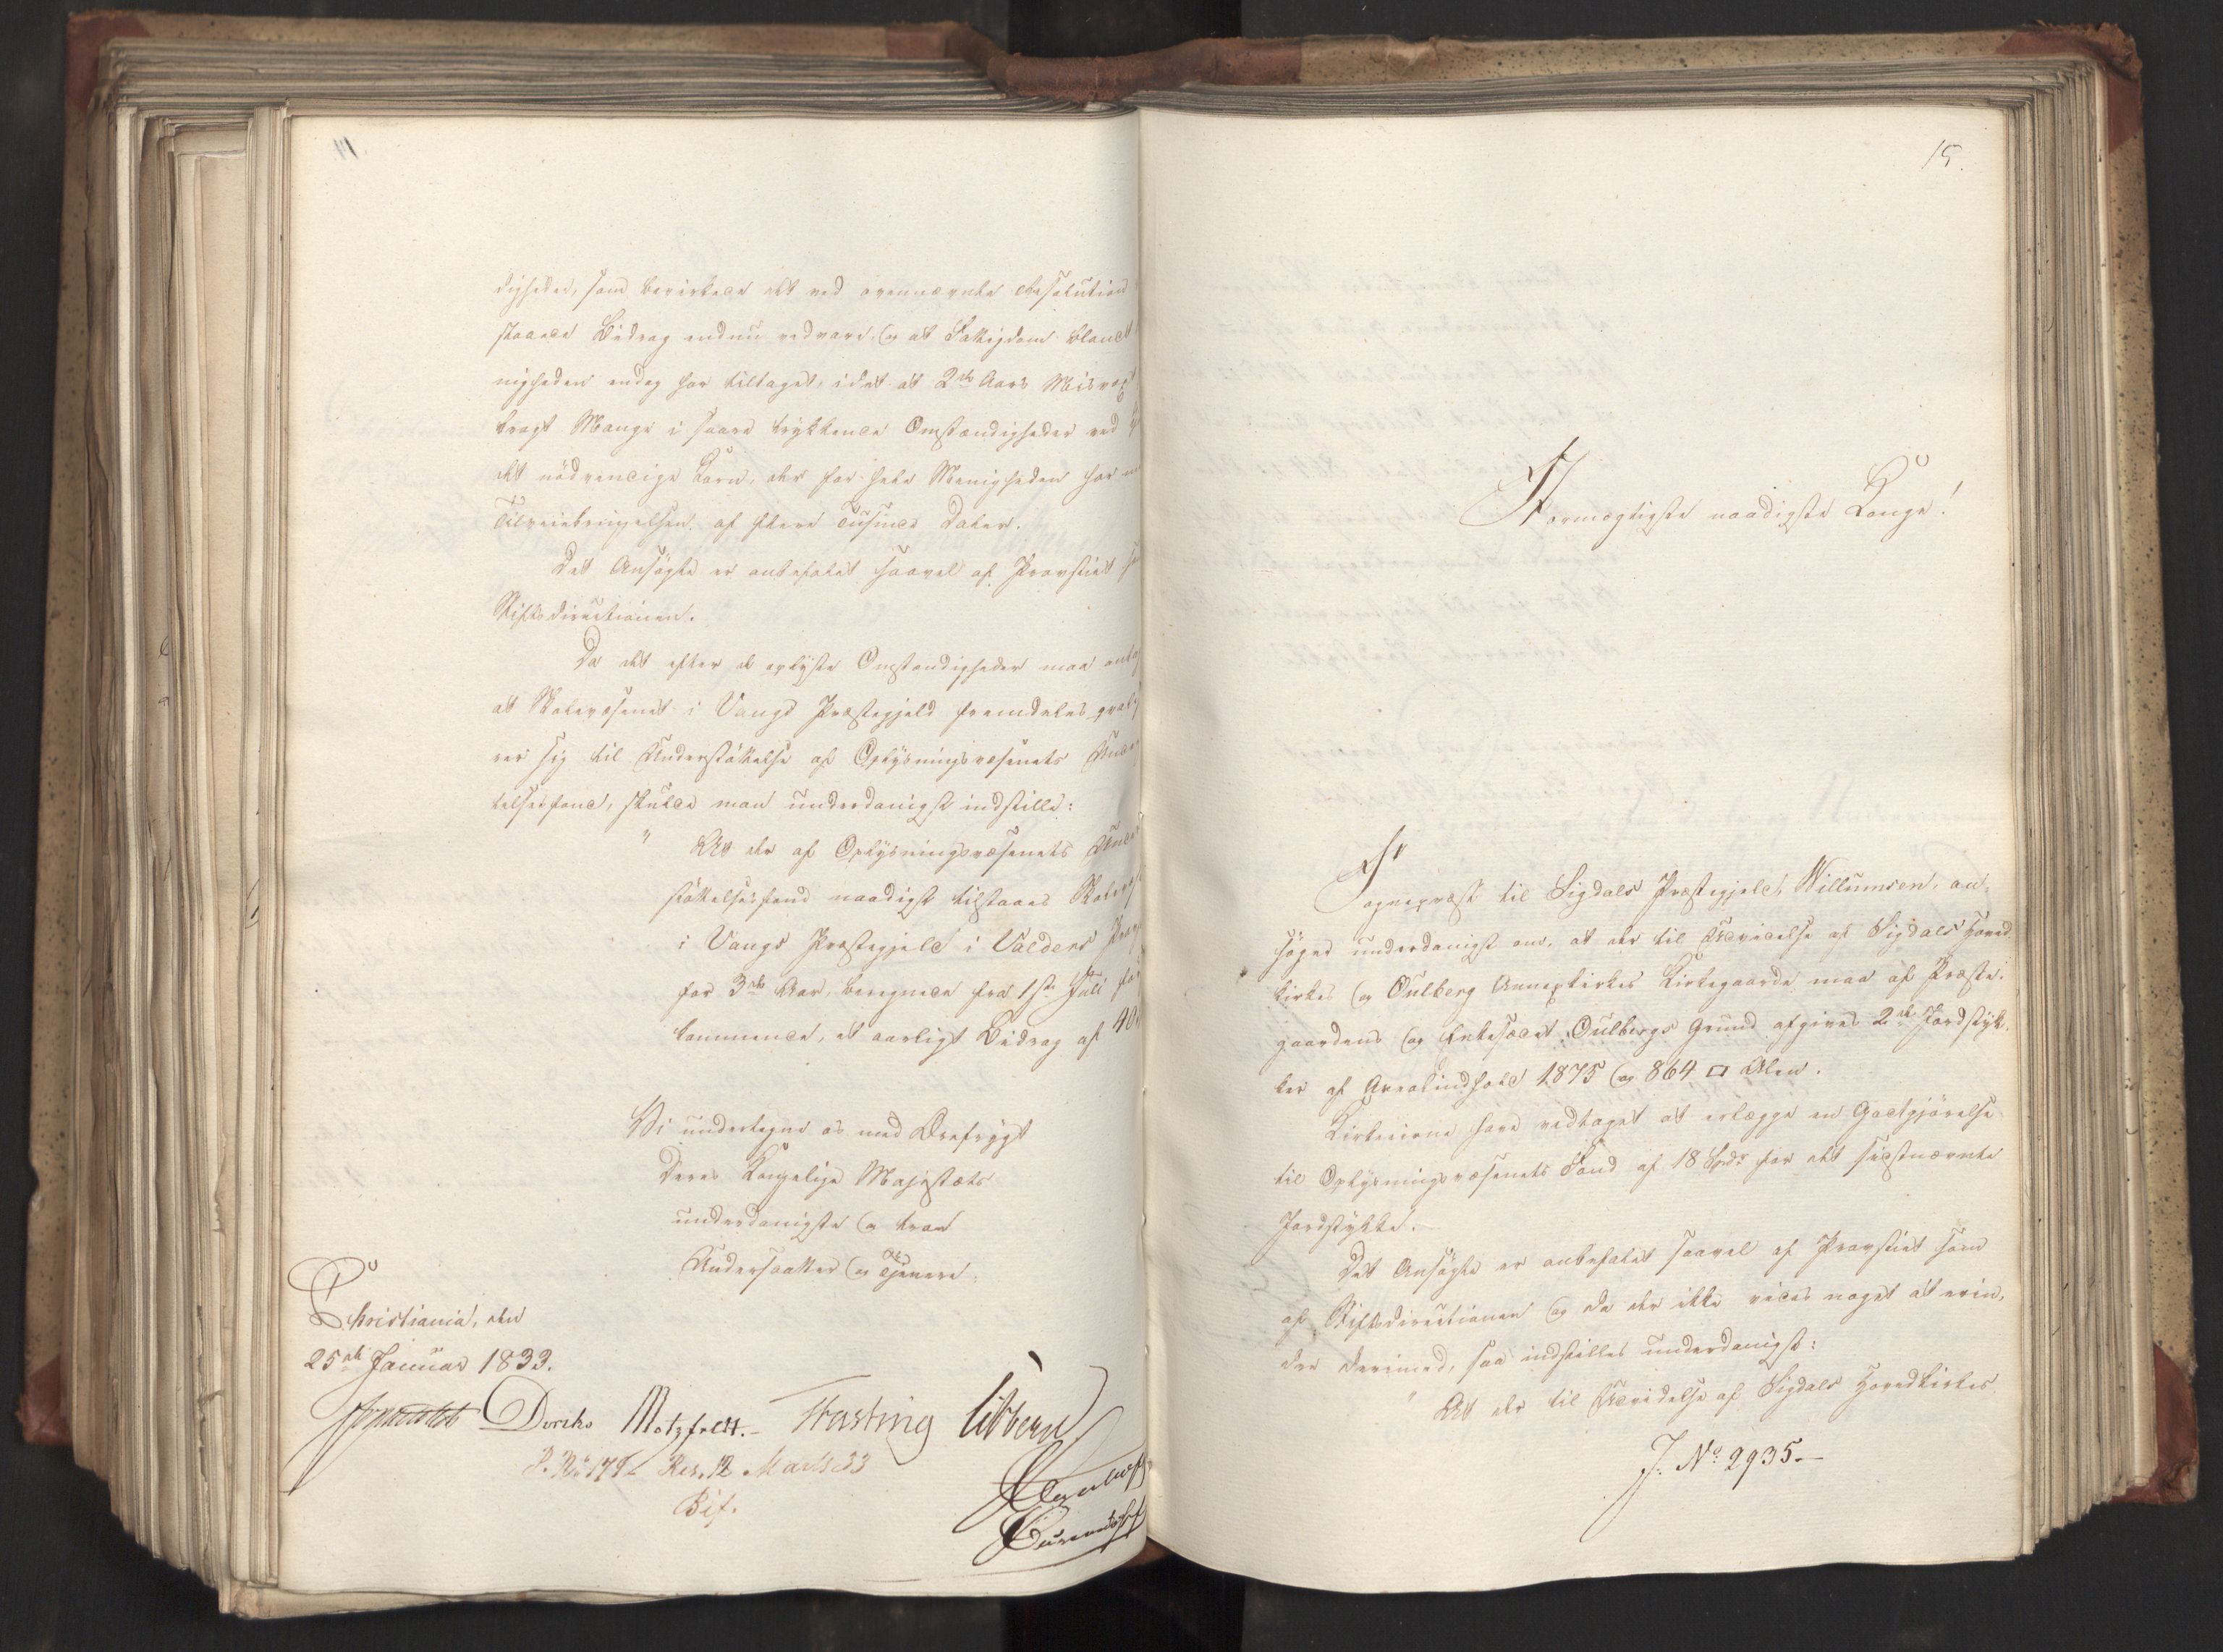 digheder, som bevirkede det ved ovennævnte Resolution
staaede Bidrag endnu vedvare, og at Fattigdom blandt
nigheden endog har tiltaget, idet at 2de Aars Misvæxt
bragt Mange i saare trykkende Omstændigheder ved
det nödvendige Korn, der for hele Menigheden har
Tilveiebringelsen af flere Tusinde Daler.
Det Ansögte er anbefalet saavel af Provstiet
Stiftsdirectionen.
Da det efter de oplyste Omstændigheder maa
at Skolevæsenet i Vangs Præstegjeld fremdeles
rer sig til Understöttelse af Oplysningsvæsenets
telsesfond, skulde man underdanigst indstille:
" At der af Oplysningsvæsenets
støttelsesfond naadigst tilstaaes
i Vangs Præstegjeld i Valders
for 3de Aar, beregnede fra 1ste Juli
kommende, et aarligt Bidrag af 40
Vi undertegne os med Ærefrygt
Deres Kongelige Majestæts
underdanigste og troe
Undersaatter og Tjenere.
Christiania, den
25de Januar 1833.
Diriks Motzfeldt.- Fasting
Res. 12 Marts 33
Bif.
15.
Stormægtigste naadigste Konge!
Sognepræst til Sigdals Præstegjeld, Willumsen, an-
söger underdanigst om, at der til Udvidelse af Sigdals Hoved-
kirkes og Oulberg Annexkirkes Kirkegaarde maa af Præste-
gaardens og Enkesædet Oulbergs Grund afgives 2de Jordstyk-
ker af Arealindhold 1875 og 864 □ Alen.
Kirkeierne have vedtaget at erlægge en Godtgjörelse
til Oplysningsvæsenets Fond af 18 Spdr for det sidstnævnte
Jordstykke.
Det Ansögte er anbefalet saavel af Provstiet som
af Stiftsdirectionen og da der ikke vides noget at erin-
dre derimod, saa indstilles underdanigst:
" At der til Udvidelse af Sigdals Hovedkirkes
J. No 2935.-